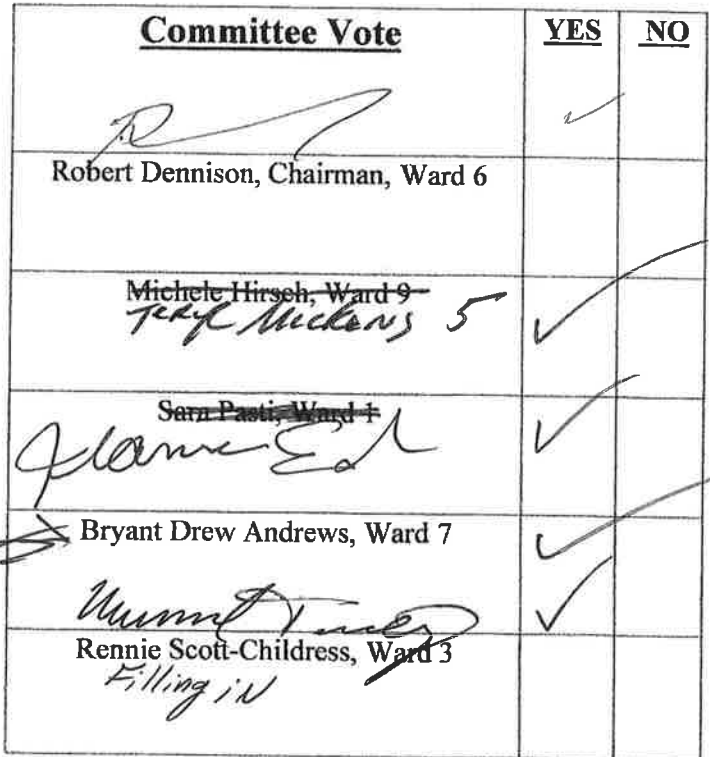 Committee Vote YES NO
Robert Dennison, Chairman, Ward 6
Michele Hirsch, Ward 9
5
Sara Pasti, Ward 1
Bryant Drew Andrews, Ward 7
Rennie Scott-Childress, Ward 3
Filling in